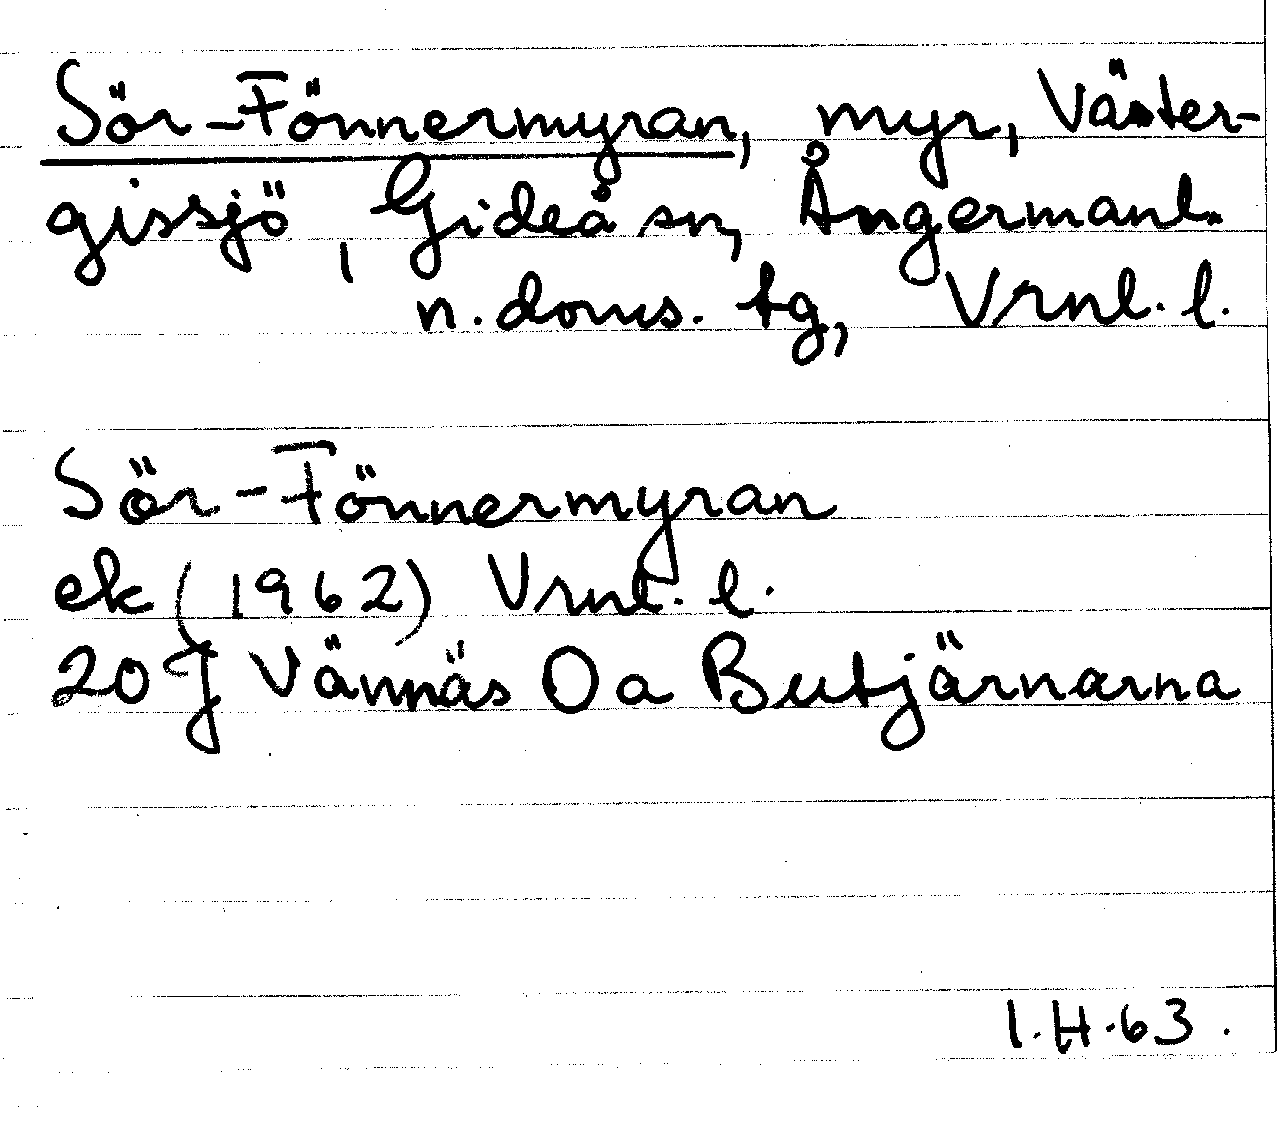 Sör-Fönnermyran, myr, Väster-
gissjö, Gideå sn, Ångermanl.
n. doms. tg, Vrnl. l.
Sör-Fönnermyran
ek (1962) Vrnl. l.
20 J Vännäs Oa Butjärnarna
I.H.63.